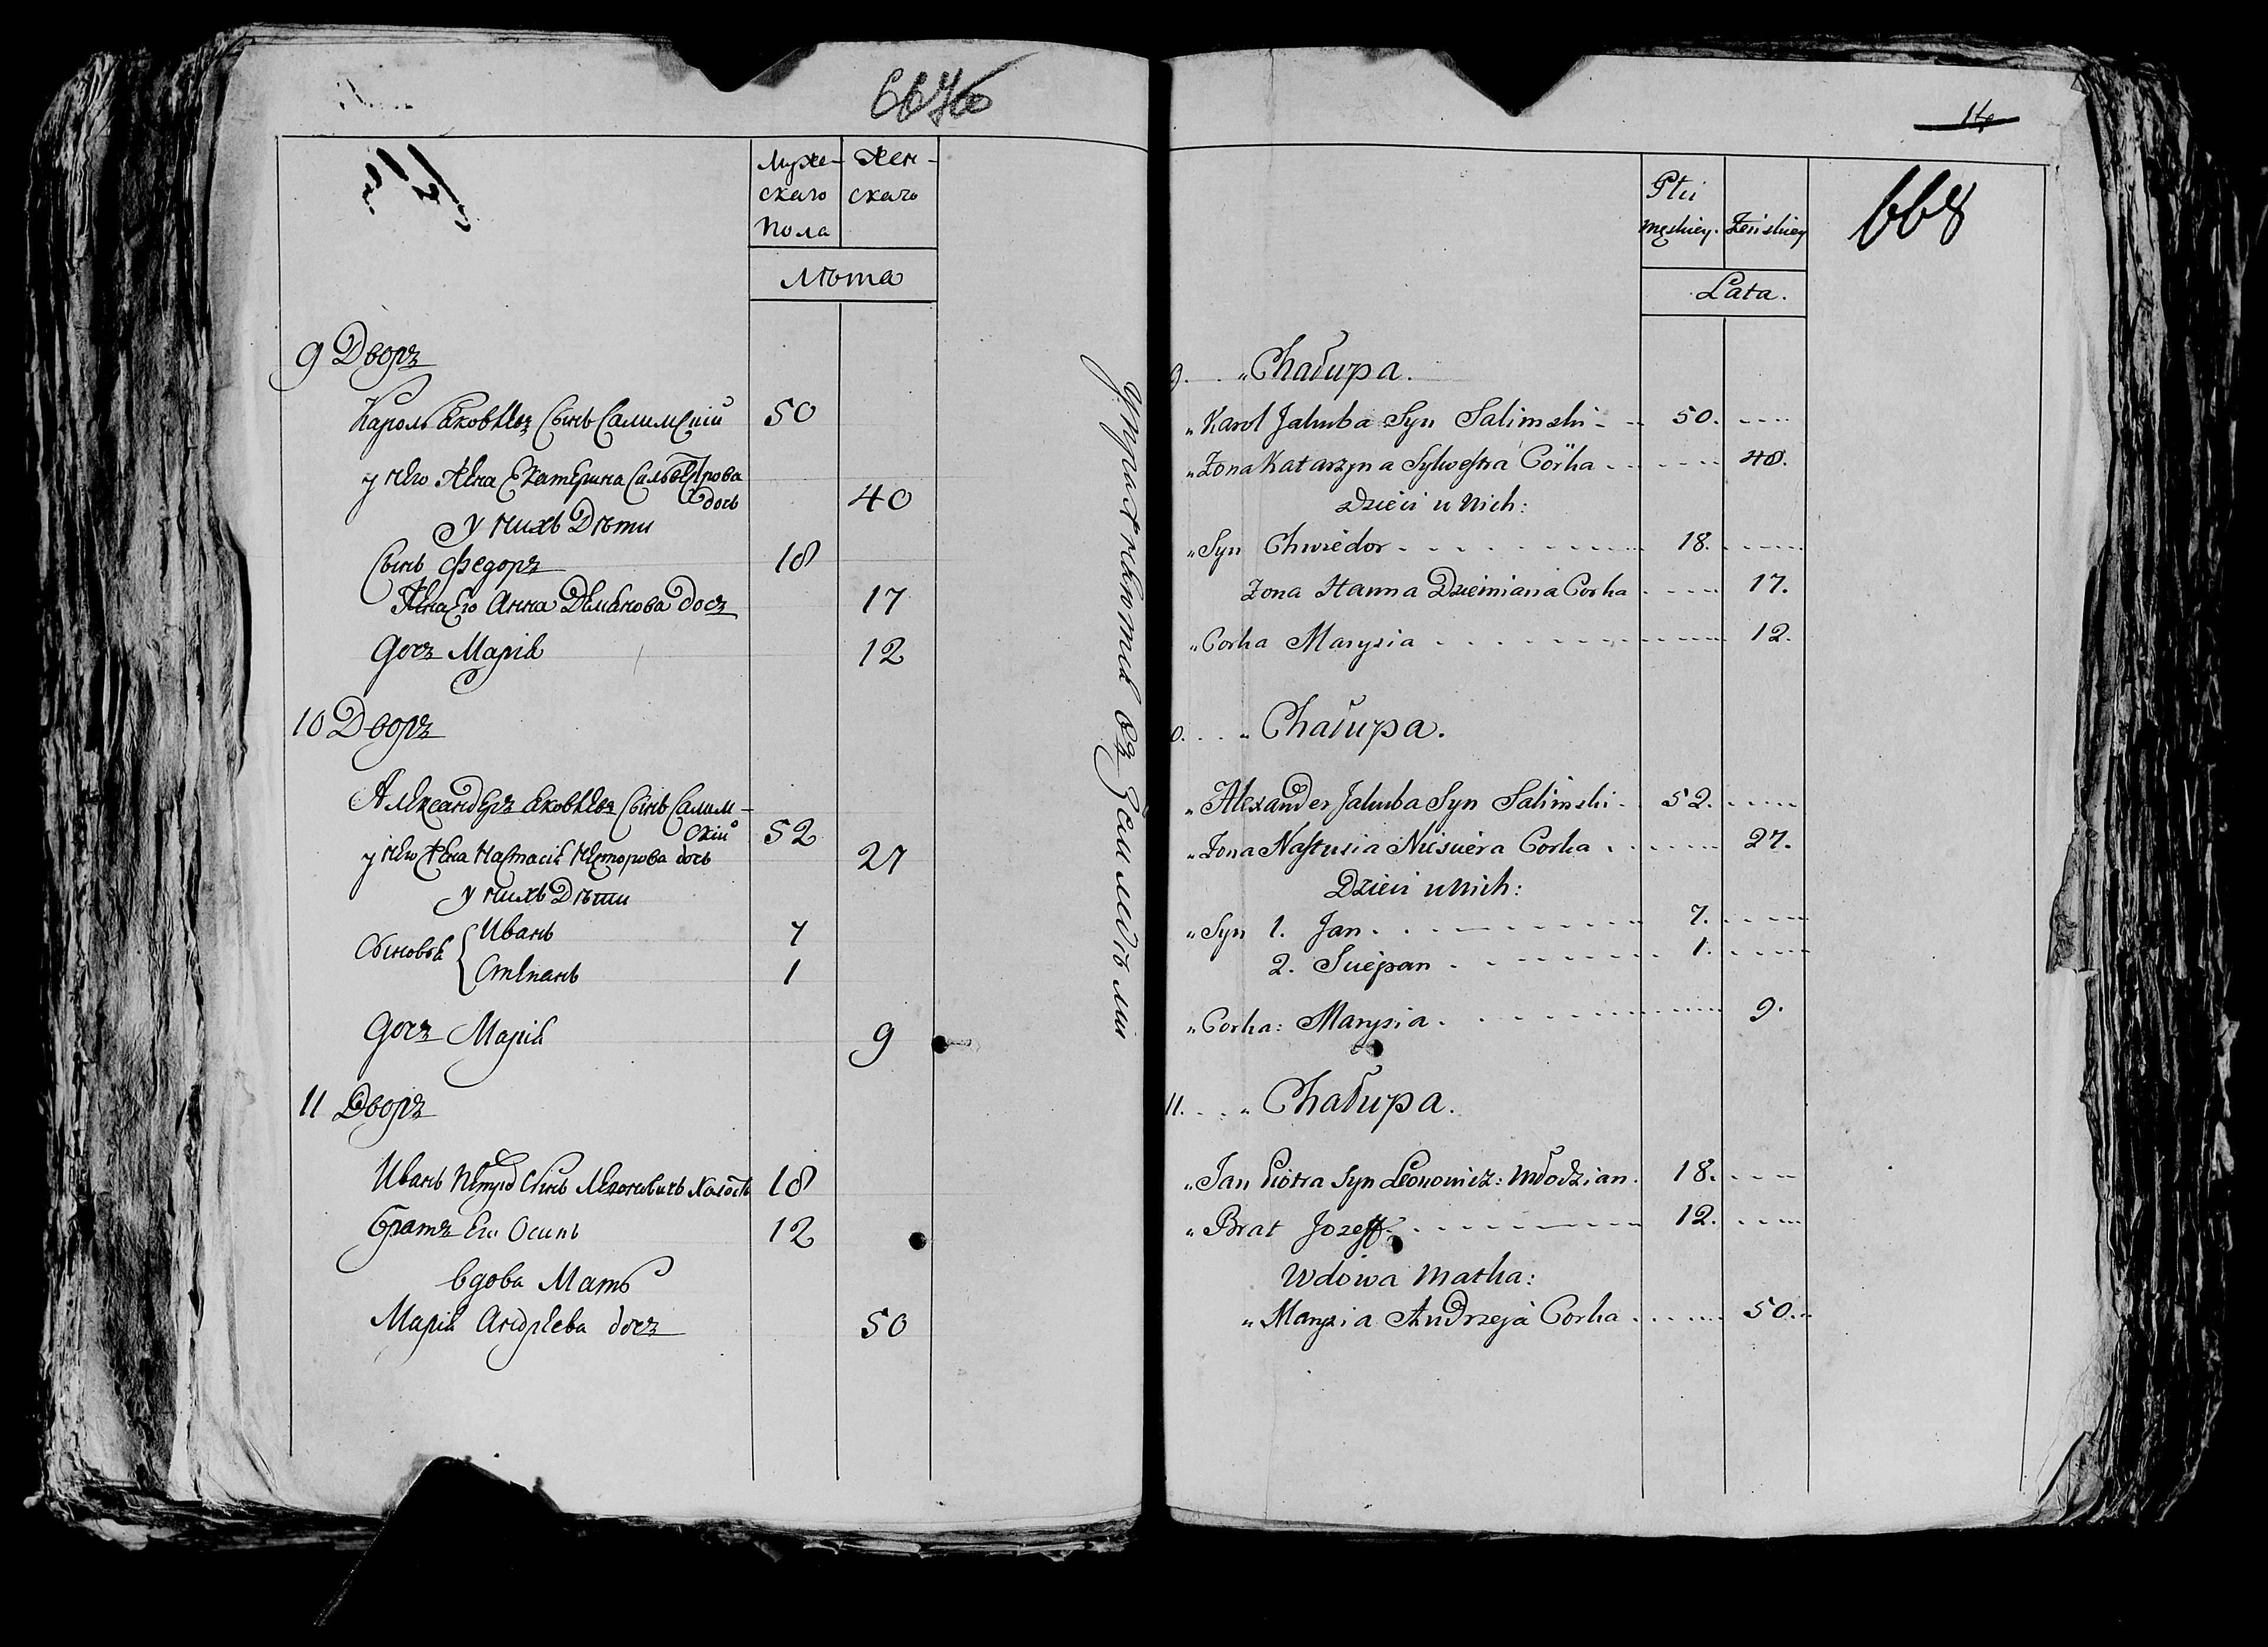 Муже- Жен-
скаго скаго
пола
Лѣта
9 Дворъ
Кароль Яковлевъ Сынъ Салимскій 50
у него Жена Екатерина Сильвестрова
дочь 40
у нихъ Дѣти
Сынъ Федоръ 18
Жена Его Анна Демьянова дочъ 17
Дочъ Марія 12
10 Дворъ
Александеръ Яковлевъ Сынъ Салим-
скій 52
у него Жена Настасія Несторова дочь 27
у нихъ Дѣти
Сыновья { Иванъ 7
Степанъ 1
Дочъ Марія 9
11 Дворъ
Иванъ Петра Сынъ Леоновичъ Холостъ 18
Братъ Его Осипъ 12
Вдова Мать
Марія Андреева дочъ 50
14
668
Płci
męskiey. Żeńskiey
Lata.
9. „Chałupa.
„Karol Jakuba Syn Salimski 50.
„Żona Katarzyna Sylwestra Córka 40.
Dzieci u Nich:
„Syn Chwiedor 18.
Żona Hanna Dziemiana Corka 17.
„Corka Marysia 12.
0. „Chałupa.
„Alexander Jakuba Syn Salimski 52.
„Żona Nastusia Niesciera Corka 27.
Dzieci u Nich:
„Syn 1. Jan 7.
2. Sciepan 1.
„Corka: Marysia 9.
11. „Chałupa.
„Jan Piotra Syn Leonowicz: Młodzian. 18.
„Brat Jozeff 12.
Wdowa Matka:
„Marysia Andrzeja Corka 50.